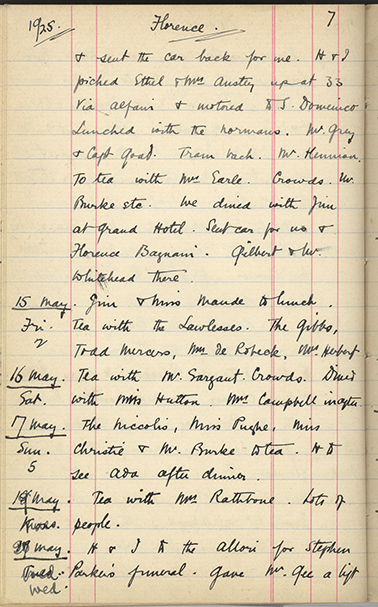 1925. Florence. 7
& sent the car back for me. H & I
picked Ethel & Mrs Anstey up at 33
Via Alfani & motored to S. Domenico &
Lunched with the Normans. Mr. Grey
& Capt Goad. Tram back. Mr. Hennion.
To tea with Mrs Earle. Crowds. Mr.
Burke etc. We dined with Jim
at Grand Hotel. Sent car for us &
Florence Bagnani. Gilbert & Mr.
Whitehead there.
15 May. Jim & Miss Maude to lunch.
Fri. Tea with the Lawlesses. The Gibbs,
2 Todd Mercers, Mrs de Robeck, Mrs Herbert
16 May. Tea with Mr. Sargant. Crowds. Dined
Sat. with Mrs Hutton. Mrs. Campbell in after.
17 May. The Niccolis, Miss Pughe, Miss
Sun. Christie & Mr. Burke to tea. H to
5 see Ada after dinner.
May. Tea with Mrs Rathbone. Lots of
people.
May. H & I to the Allori for Stephen
Wed. Parker's funeral. Gave Mr. Gee a lift